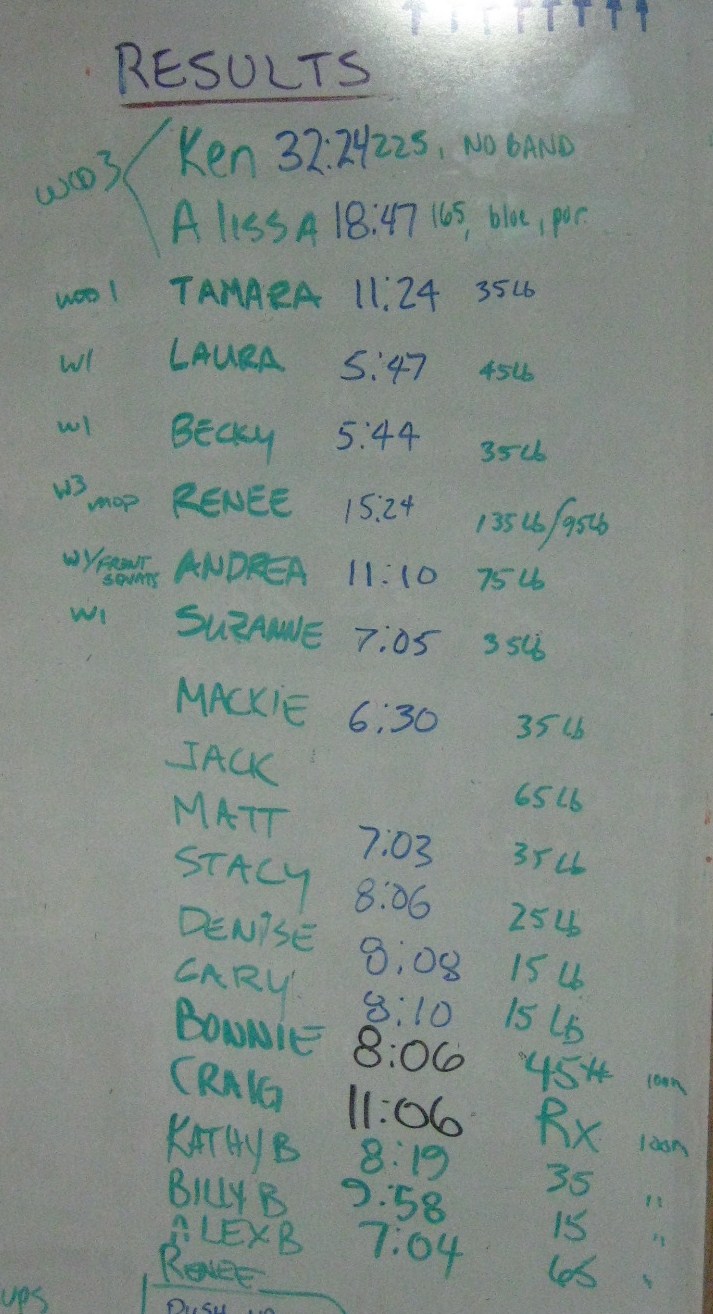 RESULTS
WOD 3 Ken 32:24 225, NO BAND
Alissa 18:47 165, blue, par.
WOD 1 TAMARA 11:24 35 lb
W1 LAURA 5:47 45 lb
W1 BECKY 5:44 35 lb
W3 MOD RENEE 15:24 135 lb/95lb
W1/FRONT SQUATS ANDREA 11:10 75 lb
W1 SUZANNE 7:05 35 lb
MACKIE 6:30 35 lb
JACK 65 lb
MATT 7:03 35 lb
STACY 8:06 25 lb
DENISE 8:08 15 lb
GARY 8:10 15 lb
BONNIE 8:06 45# 100m
CRAIG 11:06 Rx 100m
KATHY B 8:19 35 "
BILLY B 9:58 15 "
ALEX B 7:04 65 "
RENEE
UPS